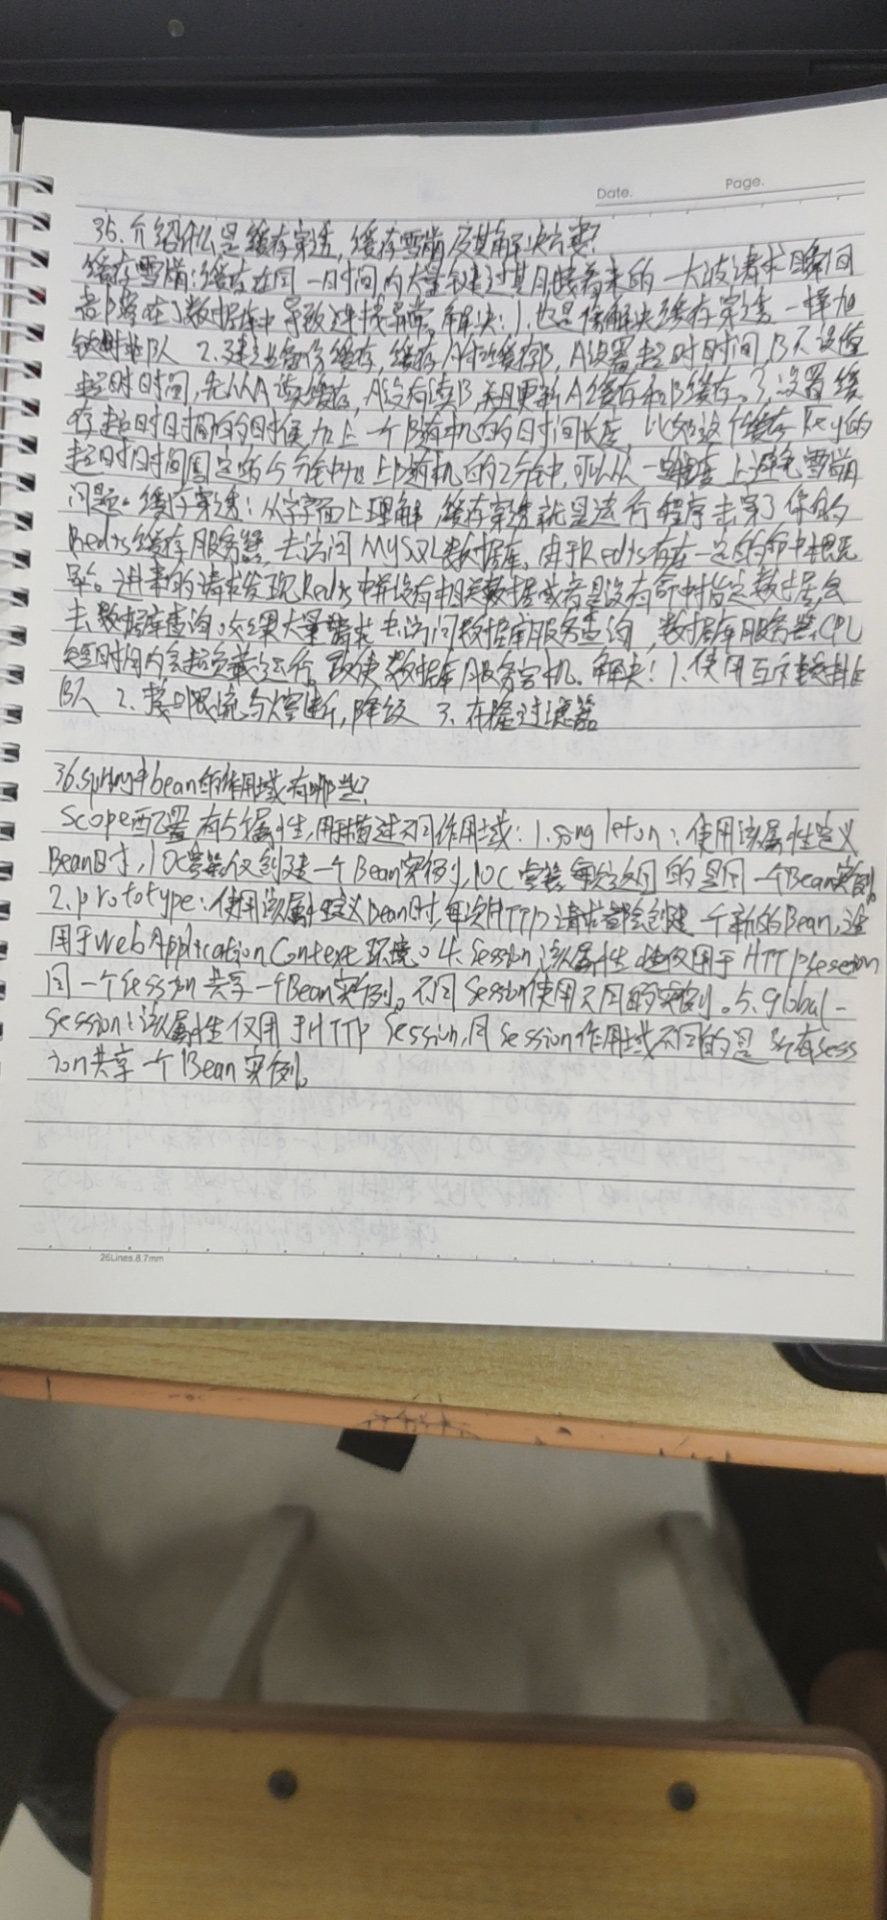 Date. Page.
35.介绍什么是缓存穿透,缓存雪崩及其解决方案?
缓存雪崩:缓存在同一时间内大量键过期,接着来的一大波请求瞬间
都落在了数据库中导致连接异常。解决:1.也是像解决缓存穿透一样加
锁排队 2.建立备份缓存,缓存A和缓存B,A设置超时时间,B不设值
超时时间,先从A读缓存,A没有读B,并且更新A缓存和B缓存。3.设置缓
存超时时间的时候加上一个随机的时间长度,比如这个缓存Key的
超时时间固定的5分钟加上随机的2分钟,可以从一定程度上避免雪崩
问题。缓存穿透:从字面上理解,缓存穿透就是运行程序击穿了你的
Redis缓存服务器,去访问MySQL数据库。由于Redis存在一定的命中概
率。进来的请求发现Redis中并没有相关数据或者是没有命中指定数据,会
去数据库查询。如果大量请求去访问数据库服务查询,数据库服务器CPU
短时间内会超负载运行。致使数据库服务宕机。解决:1.使用互斥锁排
队 2.接口限流与熔断,降级 3.布隆过滤器
36.spring中bean的作用域有哪些?
Scope配置有5个属性,用于描述不同作用域:1.singleton:使用该属性定义
Bean时,IOC容器仅创建一个Bean实例,IOC容器每次返回的是同一个Bean实例。
2.prototype:使用该属性定义Bean时,每次HTTP请求都会创建一个新的Bean,适
用于WebApplicationContext环境。4.Session:该属性仅用于HTTPSession
同一个Session共享一个Bean实例。不同Session使用不同的实例。5.global-
Session:该属性仅用于HTTP Session,同Session作用域不同的是,所有Sess
ion共享一个Bean实例。
26Lines.8.7mm